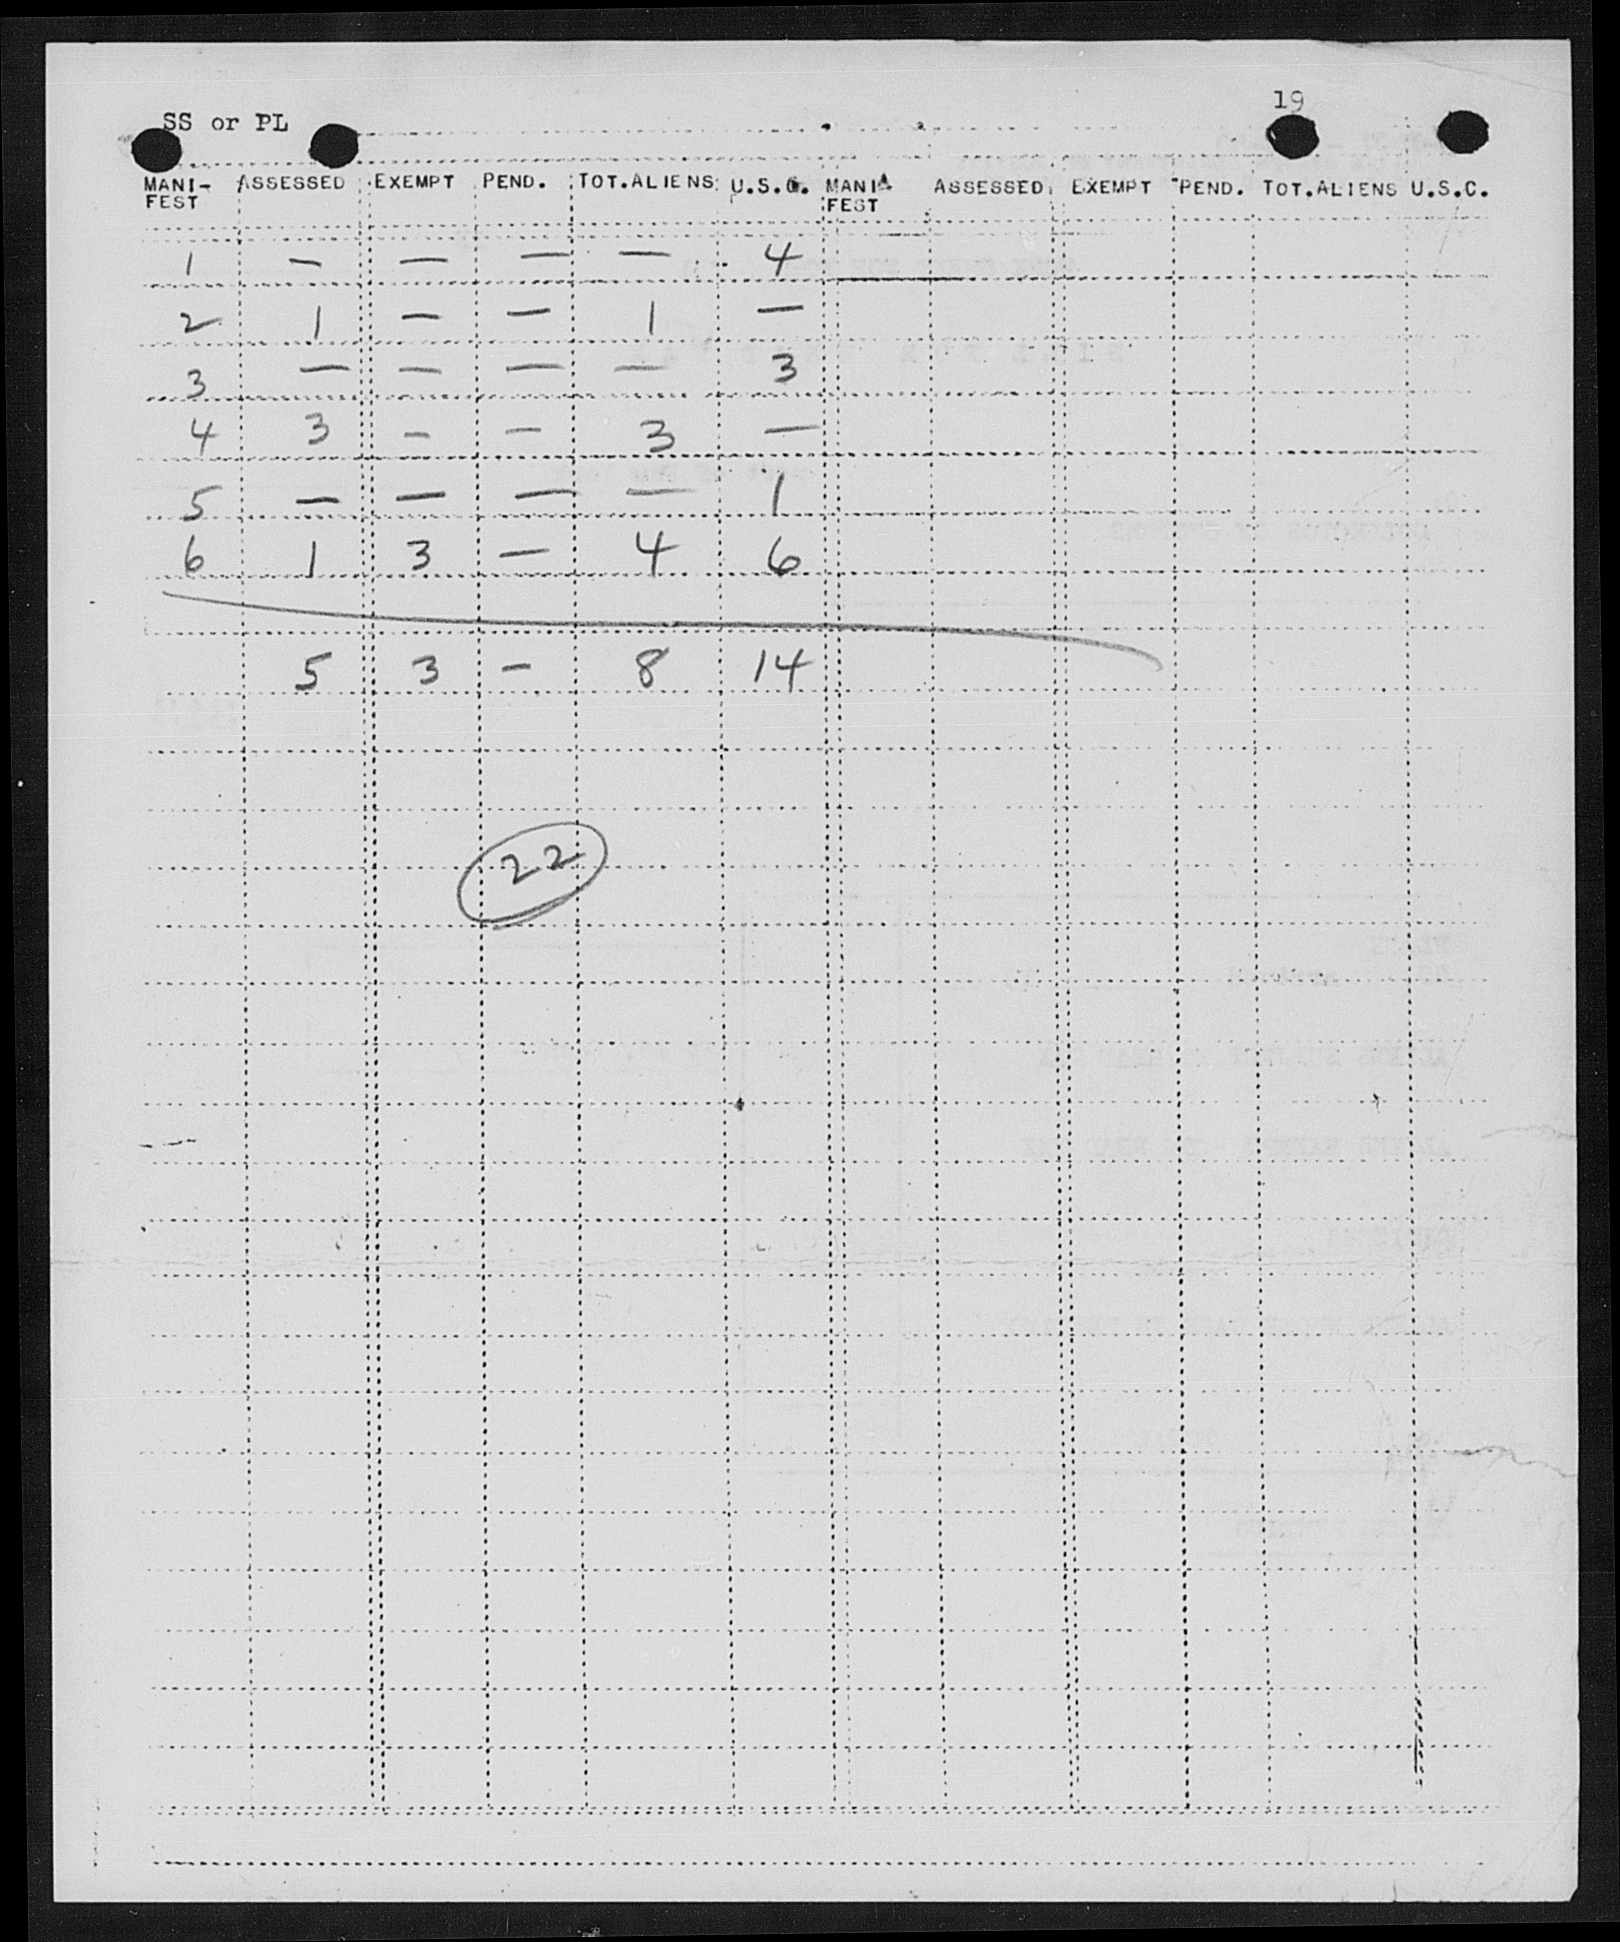 19
SS or PL
MANI-FEST ASSESSED EXEMPT PEND. TOT.ALIENS U.S.C. MANI FEST ASSESSED EXEMPT PEND. TOT.ALIENS U.S.C.
1 — — — — 4
2 1 — — 1 —
3 — — — — 3
4 3 — — 3 —
5 — — — — 1
6 1 3 — 4 6
5 3 — 8 14
22